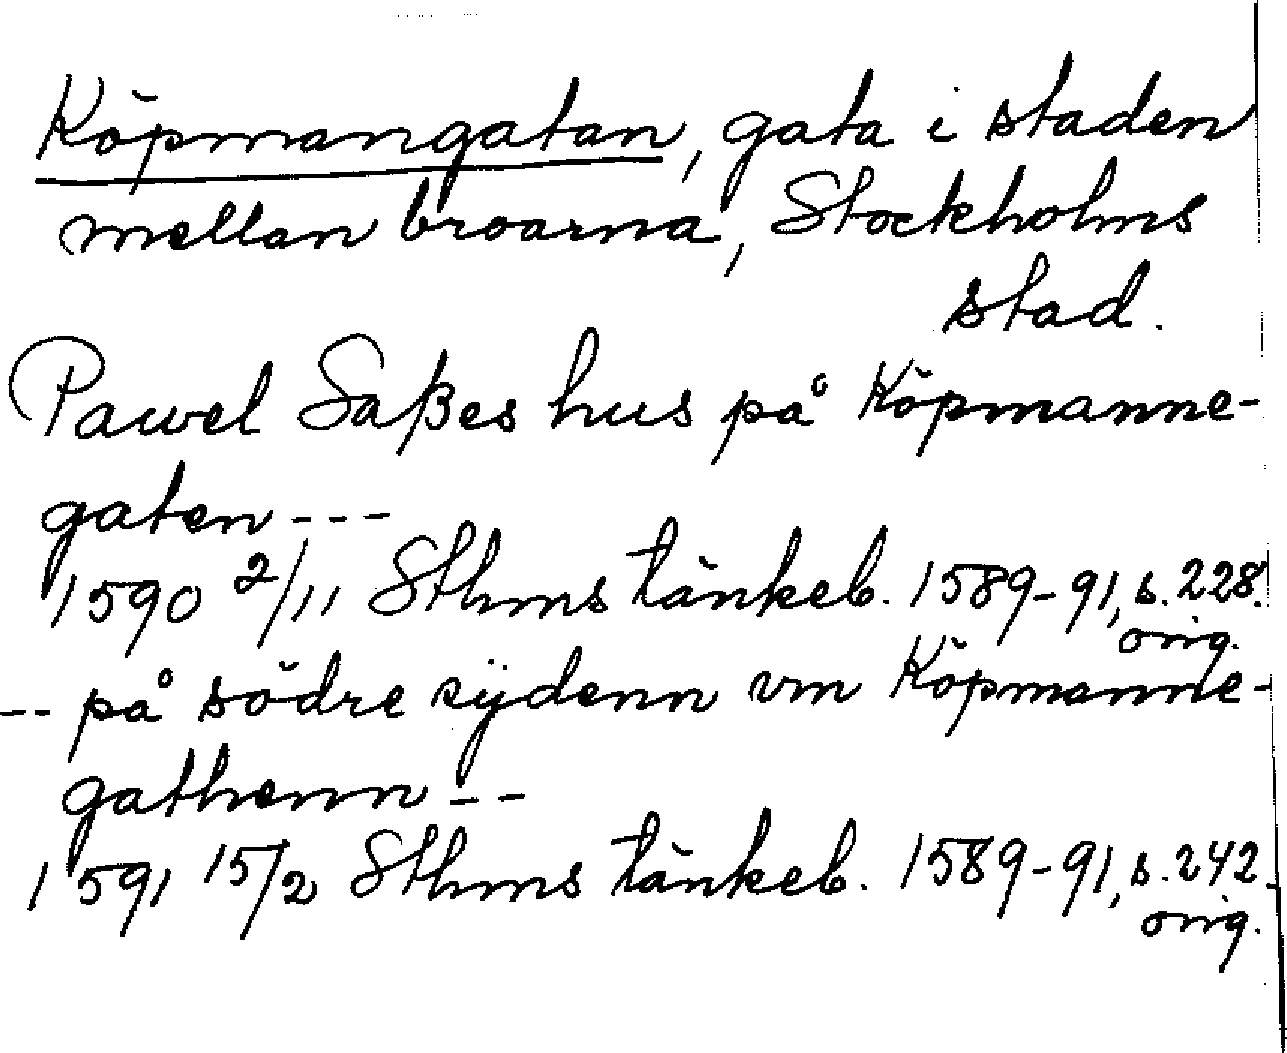 Köpmangatan, gata i staden
mellan broarna, Stockholms
stad.
Pawel Saßes hus på Köpmanne-
gaten ---
1590 2/11 Sthms tänkeb. 1589-91, s. 228.
orig.
-- på södre sijdenn vm Köpmanne-
gathenn --
1591 15/2 Sthms tänkeb. 1589-91, s. 242.
orig.